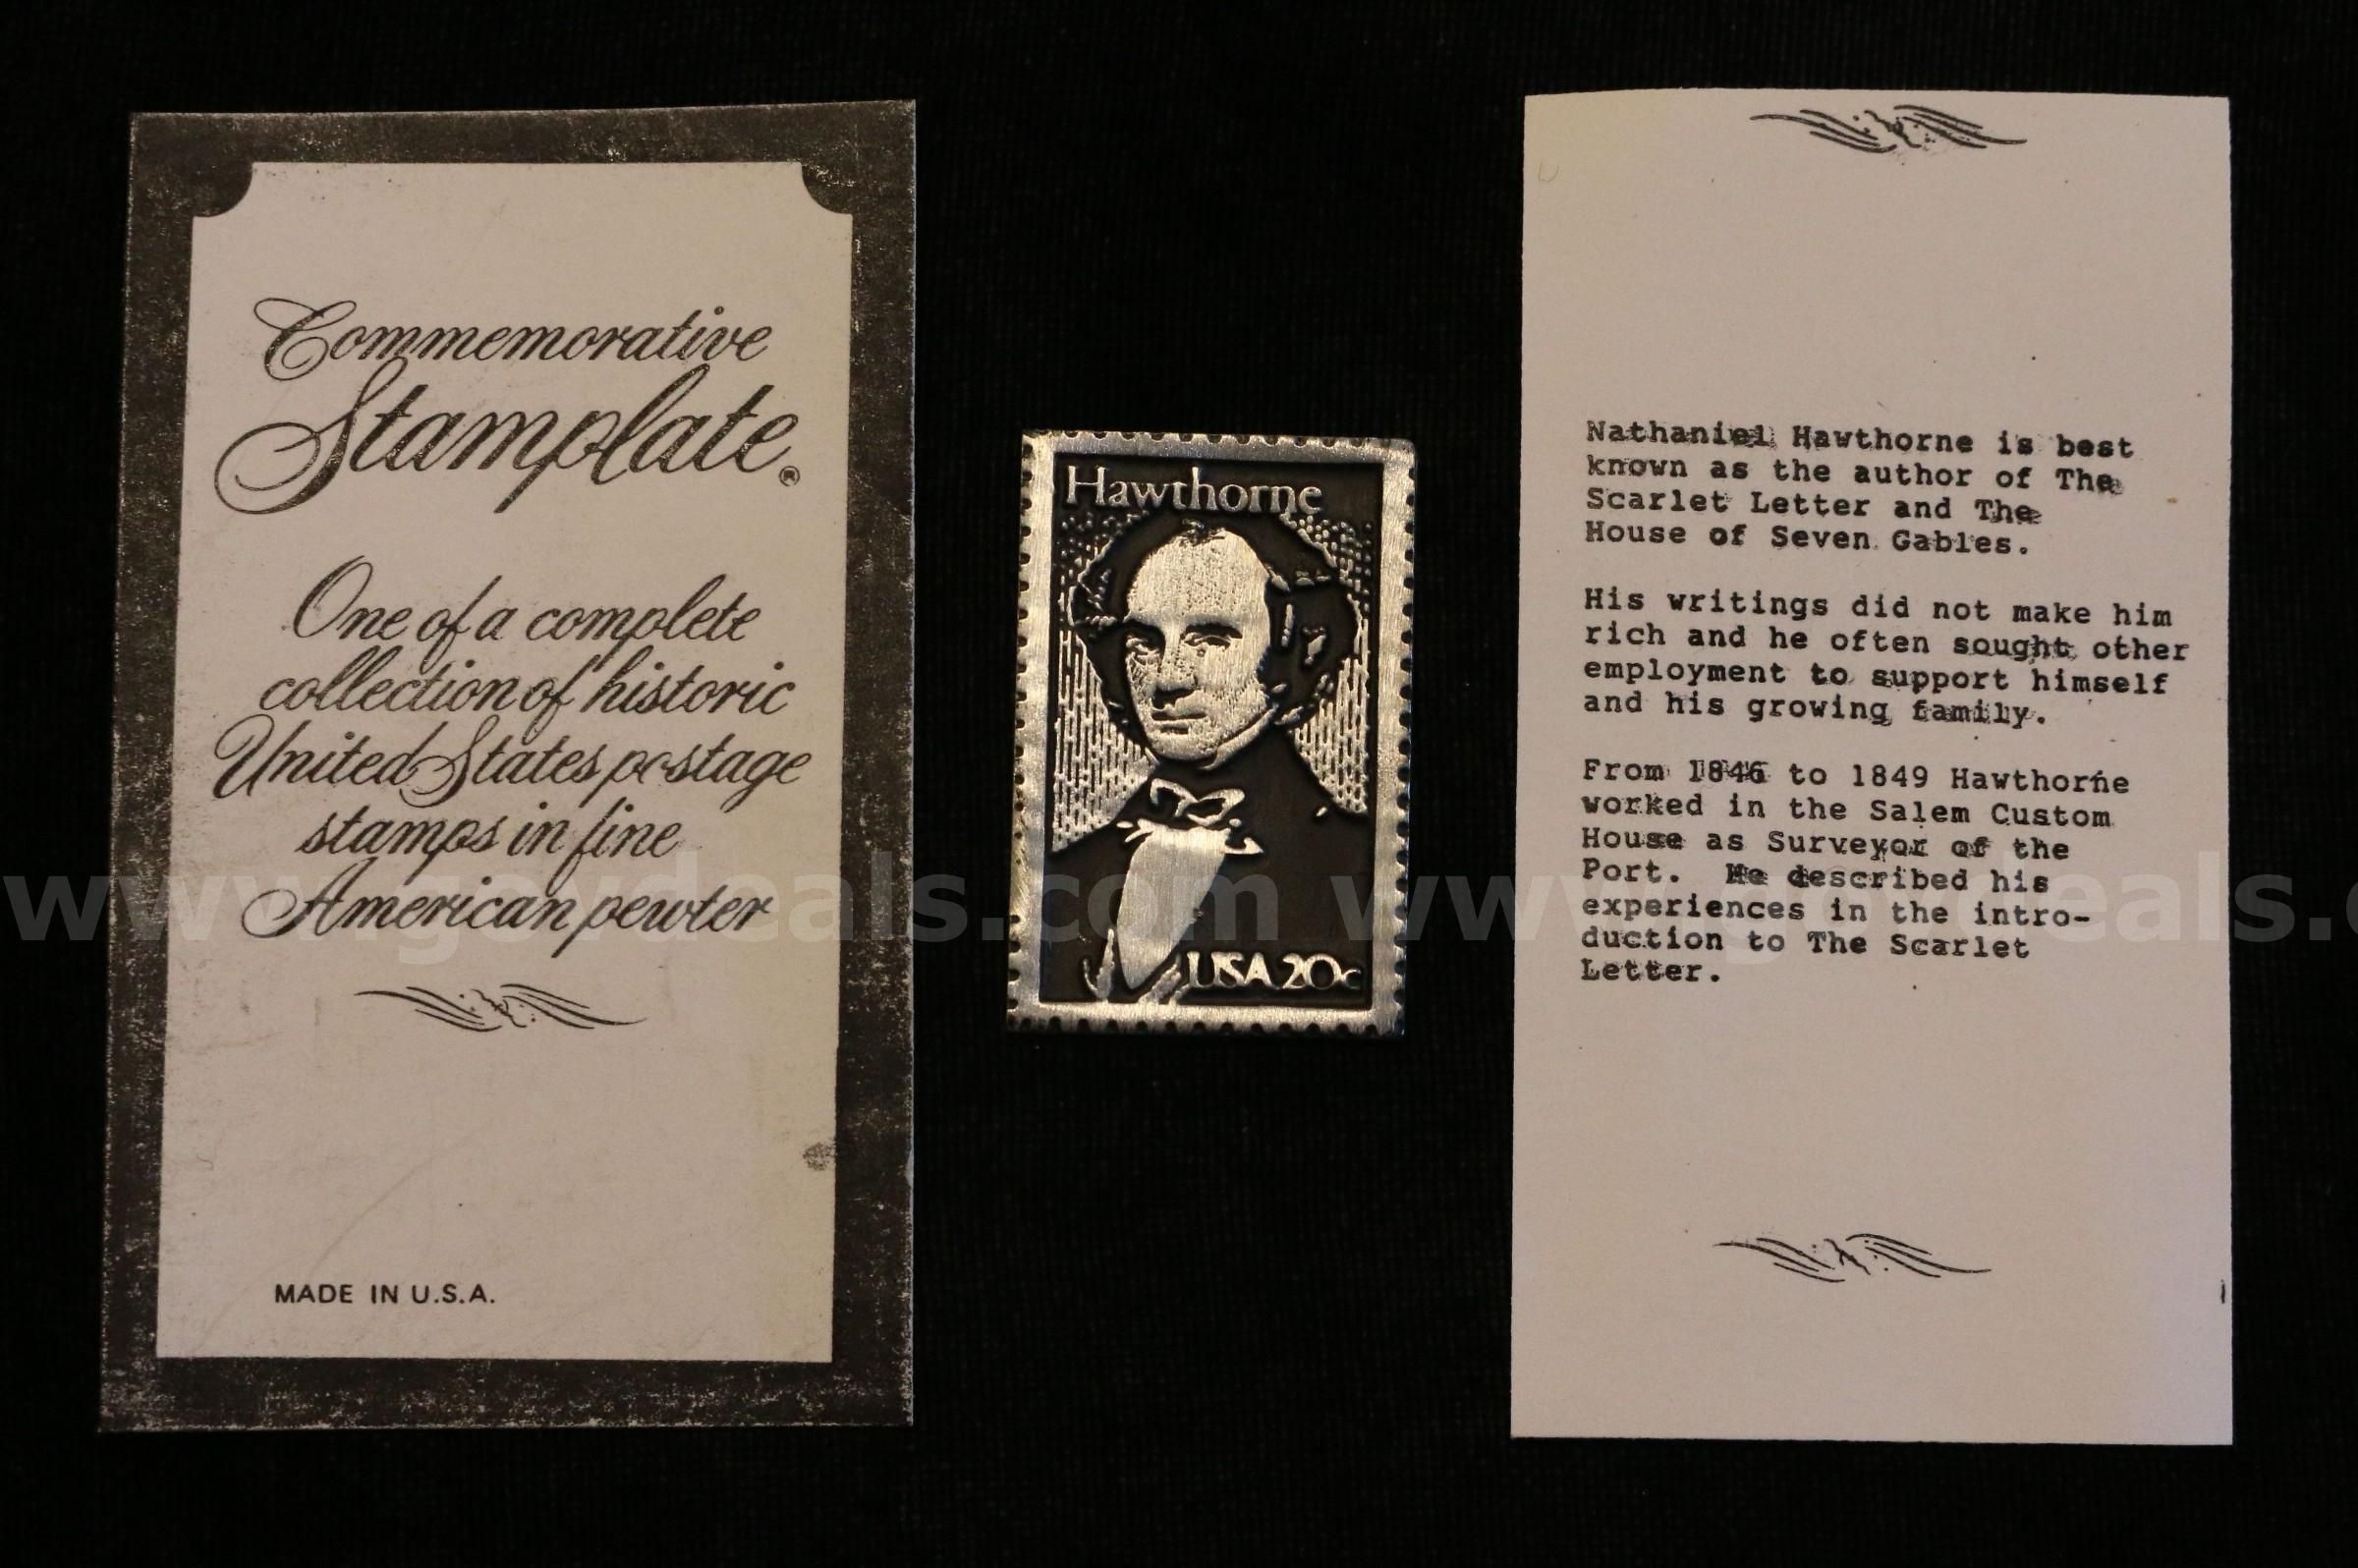 Commemorative
Stamplate®
One of a complete
collection of historic
United States postage
stamps in fine
American pewter
MADE IN U.S.A.
Hawthorne
USA 20c
Nathaniel Hawthorne is best
known as the author of The
Scarlet Letter and The
House of Seven Gables.
His writings did not make him
rich and he often sought other
employment to support himself
and his growing family.
From 1846 to 1849 Hawthorne
worked in the Salem Custom
House as Surveyor of the
Port. He described his
experiences in the intro-
duction to The Scarlet
Letter.
www.govdeals.com www.govdeals.c